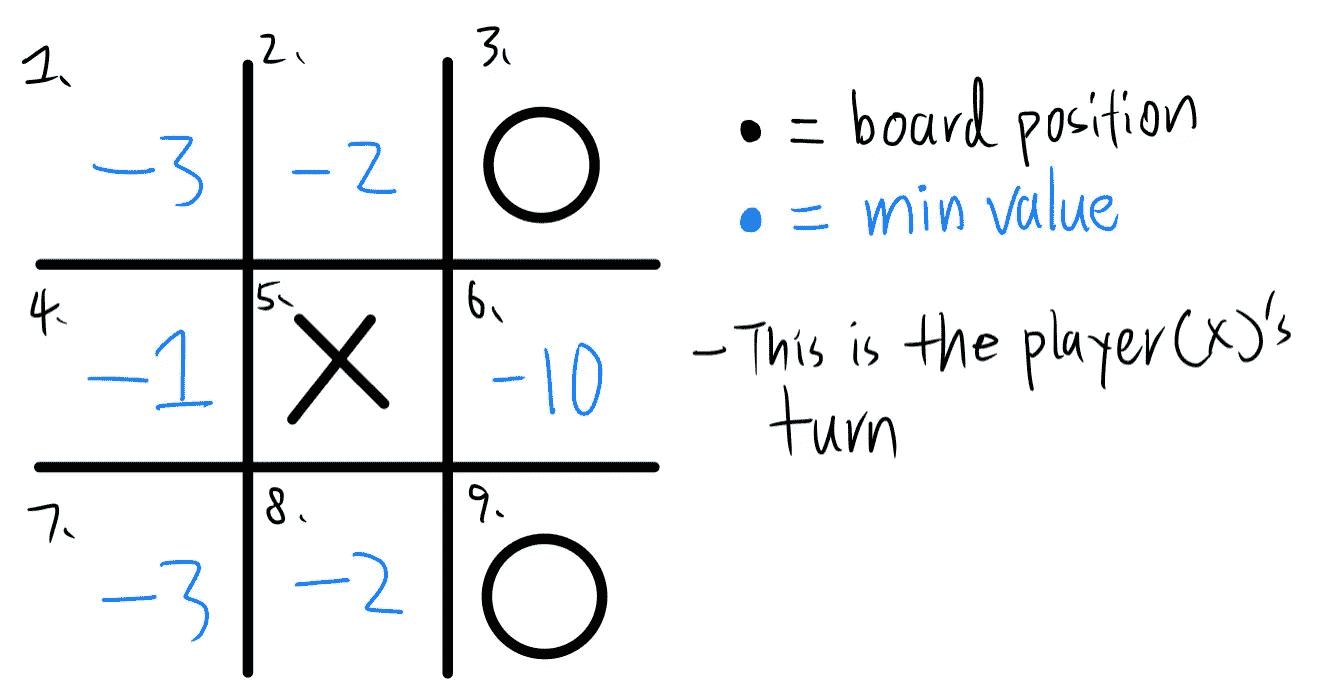 1. 2. 3.
-3 -2 O
4. 5. 6.
-1 X -10
7. 8. 9.
-3 -2 O
• = board position
• = min value
- This is the player(X)'s
turn